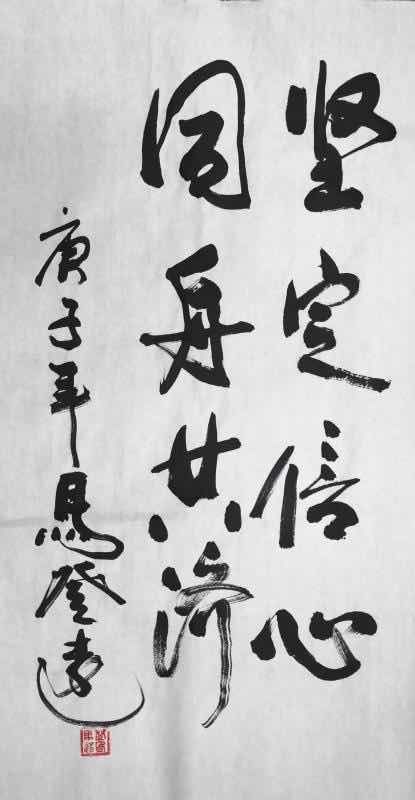 坚定信心
同舟共济
庚子年马登远